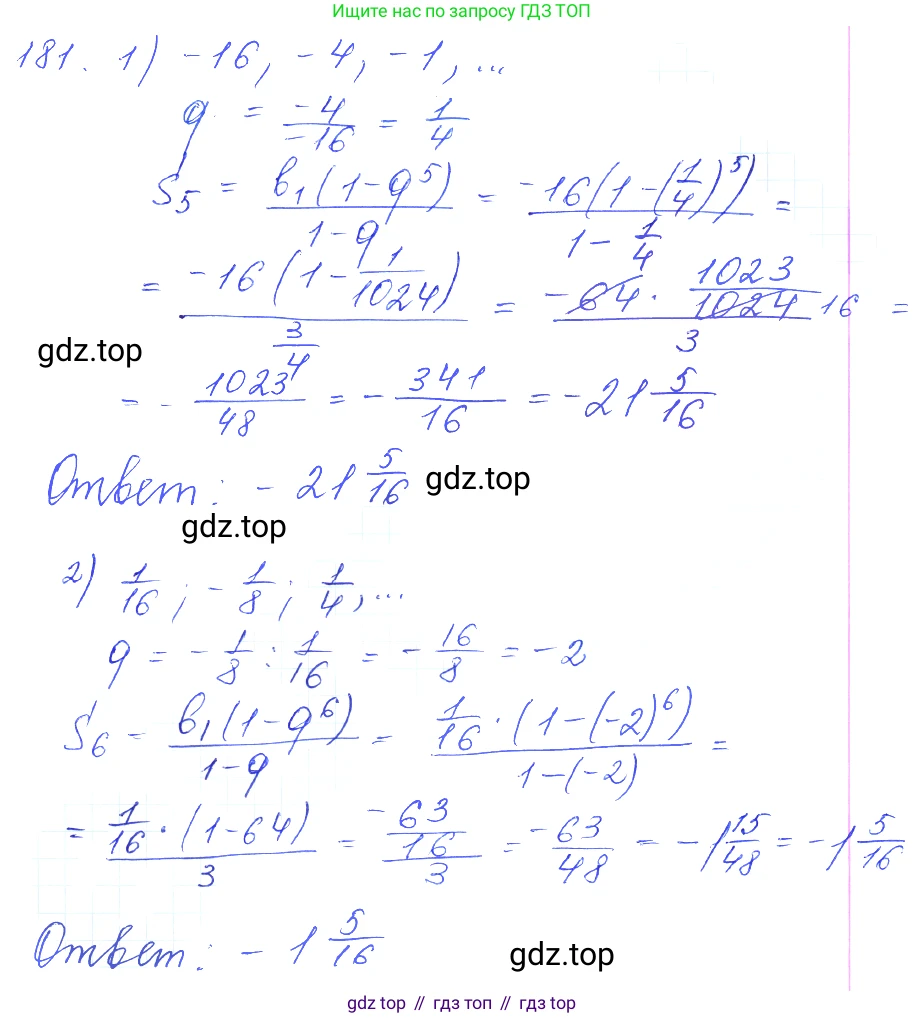 Ищите нас по запросу ГДЗ ТОП
181. 1) -16, -4, -1, ...
q = -4/-16 = 1/4
S₅ = b₁(1-q⁵)/1-q = -16(1-(1/4)⁵)/1-1/4 =
= -16(1-1/1024)/3/4 = -64 · 1023/1024 16/3 =
gdz.top
= -1023/48 = -341/16 = -21 5/16
Ответ: -21 5/16
gdz.top
gdz.top
2) 1/16; -1/8; 1/4, ...
q = -1/8 : 1/16 = -16/8 = -2
S₆ = b₁(1-q⁶)/1-q = 1/16 · (1-(-2)⁶)/1-(-2) =
= 1/16 · (1-64)/3 = -63/16/3 = -63/48 = -1 15/48 = -1 5/16
Ответ: -1 5/16
gdz.top
gdz.top // гдз топ // gdz.top